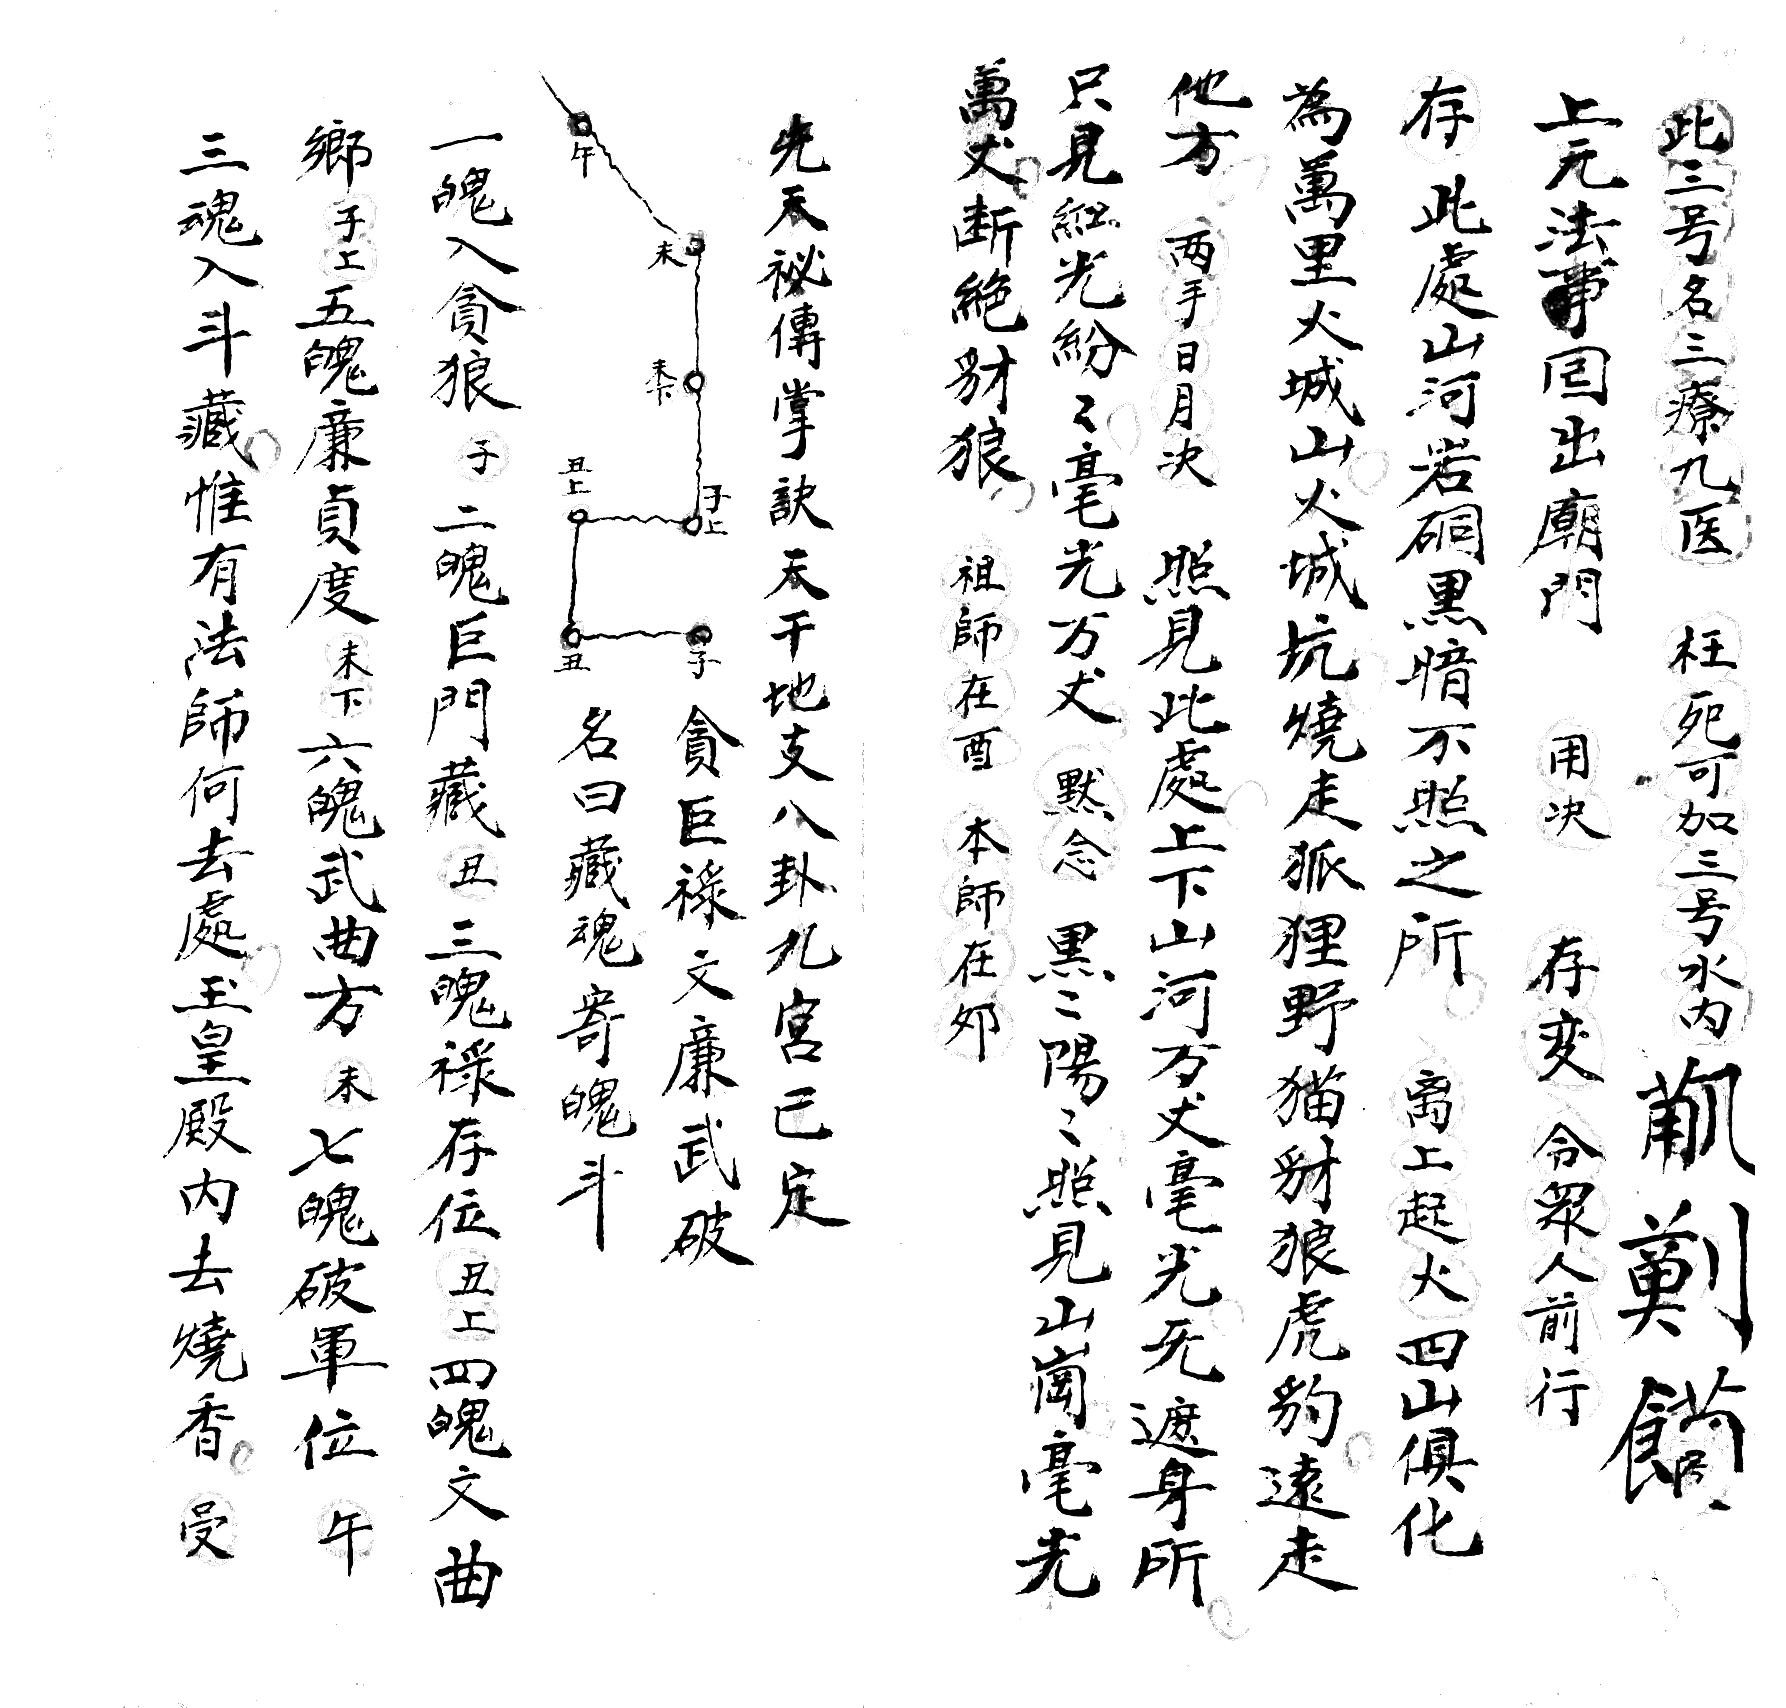 此三号名三療九医 枉死可加三号水内
上元法事囘出廟門 用决 存变 令眾人前行
存 此處山河岩硐黒暗不照之所 离上起火 四山俱化
為萬里火城山火城坑燒走狐狸野猫豺狼虎豹遠走
他方 两手日月决 照見此處上下山河万丈毫光无遮身所
只見紅光紛〻毫光万丈 默念 黒〻陽〻照見山崗毫光
萬丈断絶豺狼 祖師在酉 本師在夘
先天祕傳掌訣天干地支八卦九宮已定
貪巨祿文廉武破
午
未
未下
子上
丑上
丑
子
名曰藏魂寄魄斗
一魄入貪狼 子 二魄巨門藏 丑 三魄祿存位 丑上 四魄文曲
鄉 子上 五魄廉貞度 未下 六魄武曲方 未 七魄破軍位 午
三魂入斗藏惟有法師何去處玉皇殿内去燒香 受